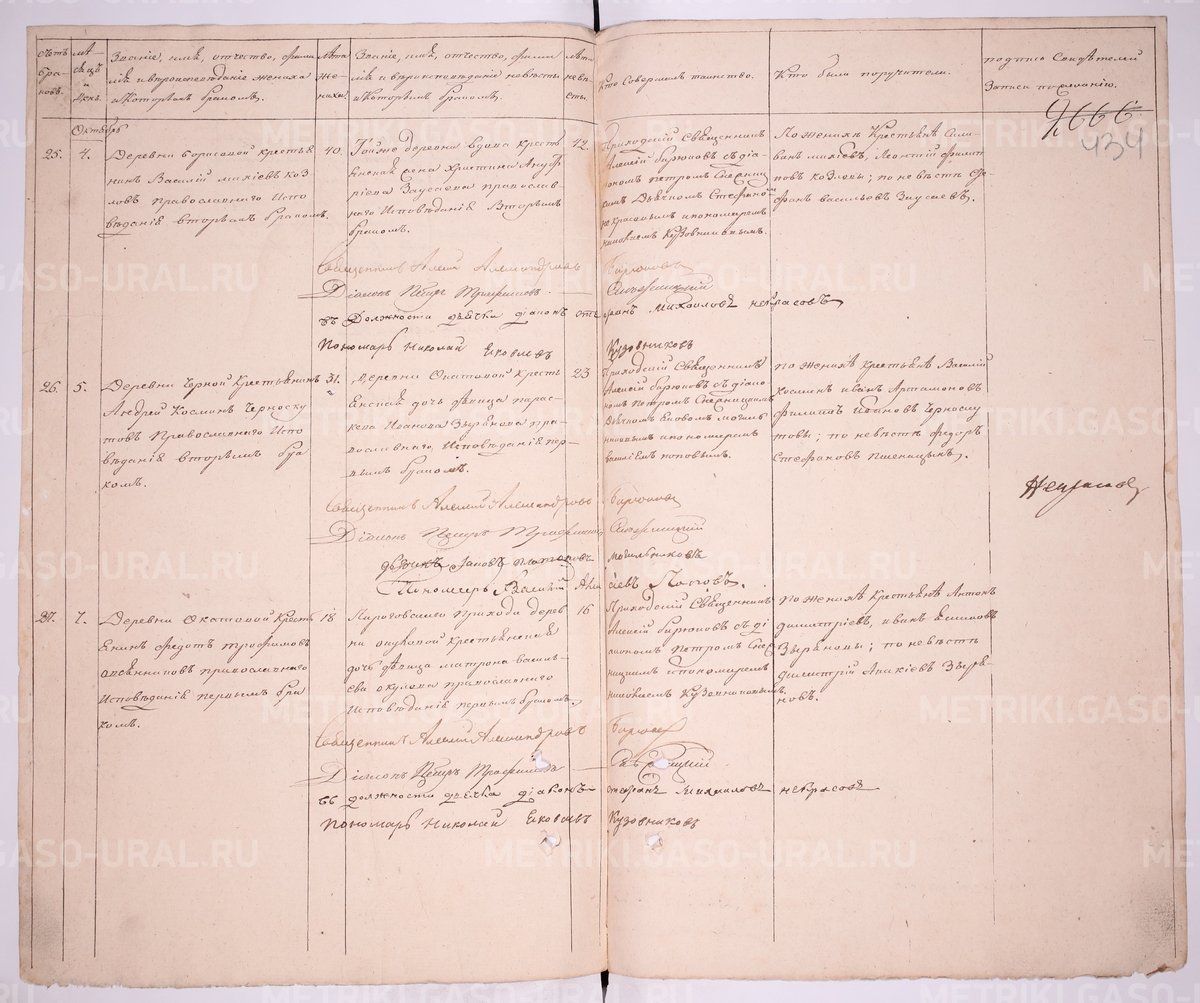 Счетъ браковъ.
Мѣсяцъ и день.
Званіе, имя, отчество, фами
лія и вѣроисповѣданіе жениха
и которымъ бракомъ.
Лѣта
же-
ниха.
Званіе, имя, отчество, фами
лія и вѣроисповѣданіе невѣсты
и которымъ бракомъ.
Лѣта
невѣ-
сты.
Кто совершилъ таинство.
Кто были поручители.
подпись Свидѣтелей
Записи по желанію.
434
Октябрь
25.
4.
Деревни Борисовой крестья
нинъ Василій Михѣевъ Коз
ловъ православнаго Испо
вѣданія вторымъ бракомъ.
40.
Тойже деревни вдова крест
янская жена Христина Ануф
ріева Заусаева православ-
наго Исповѣданія Вторымъ
бракомъ.
42.
Приходскій Священникъ
Алексій Бирюковъ съ діа-
кономъ Петромъ
Дьячкомъ Стефаномъ
Некрасовымъ и пономаремъ
Николаемъ Кузовниковымъ.
По женихѣ Крестьяне Сили-
ванъ Михѣевъ, Леонтій Филип
повъ Козловы; по невѣстѣ Сте
фанъ Васильевъ Заусаевъ.
Священникъ Алексій Александровъ Бирюковъ
Діаконъ Петръ Трофимовъ
въ Должности дьячка діаконъ Стефанъ Михайловъ Некрасовъ
Пономарь Николай Яковлевъ Кузовниковъ
26.
5.
Деревни Черной Крестьянинъ
Андрей Косминъ Черноску
товъ Православнаго Испо
вѣданія вторымъ бра
комъ.
31.
Деревни Окатовой Кресть
янская дочь дѣвица Парас-
кева Иванова Зырянова пра-
вославнаго Исповѣданія пер-
вымъ бракомъ.
23
Приходскій Священникъ
Алексій Бирюковъ съ діако-
номъ Петромъ
Дьячкомъ Яковомъ Могиль
никовымъ и пономаремъ
Василіемъ Поповымъ.
По женихѣ крестьяне Василій
Косминъ Иванъ Артамоновъ
Филипъ Ивановъ Черноску
товы; по невѣстѣ Федоръ
Стефановъ Пшеницынъ.
Священникъ Алексій Александровъ Бирюковъ
Діаконъ Петръ Трофимовъ
дьячокъ Іаковъ Платоновъ Могильниковъ
Пономарь Василій Поповъ.
27.
7.
Деревни Окатовой Кресть
янинъ Федотъ Трофимовъ
Овсянниковъ православнаго
Исповѣданія первымъ бра
комъ.
18
прихода дерев
ни Окуловой крестьянская
дочь дѣвица Матрона Василь-
ева Окулова православнаго
Исповѣданія первымъ бракомъ.
16
Приходскій Священникъ
Алексій Бирюковъ съ ді
акономъ Петромъ
и пономаремъ
Николаемъ Кузовниковымъ.
По женихѣ Крестьяне Антонъ
Димитріевъ, Иванъ Екимовъ
Зыряновы; по невѣстѣ
Димитрій Зыря-
новъ.
Священникъ Алексій Александровъ Бирюковъ
Діаконъ Петръ Трофимовъ
въ должности дьячка діаконъ Стефанъ Михайловъ Некрасовъ
Пономарь Николай Яковлевъ Кузовниковъ
METRIKI.GASO-URAL.RU